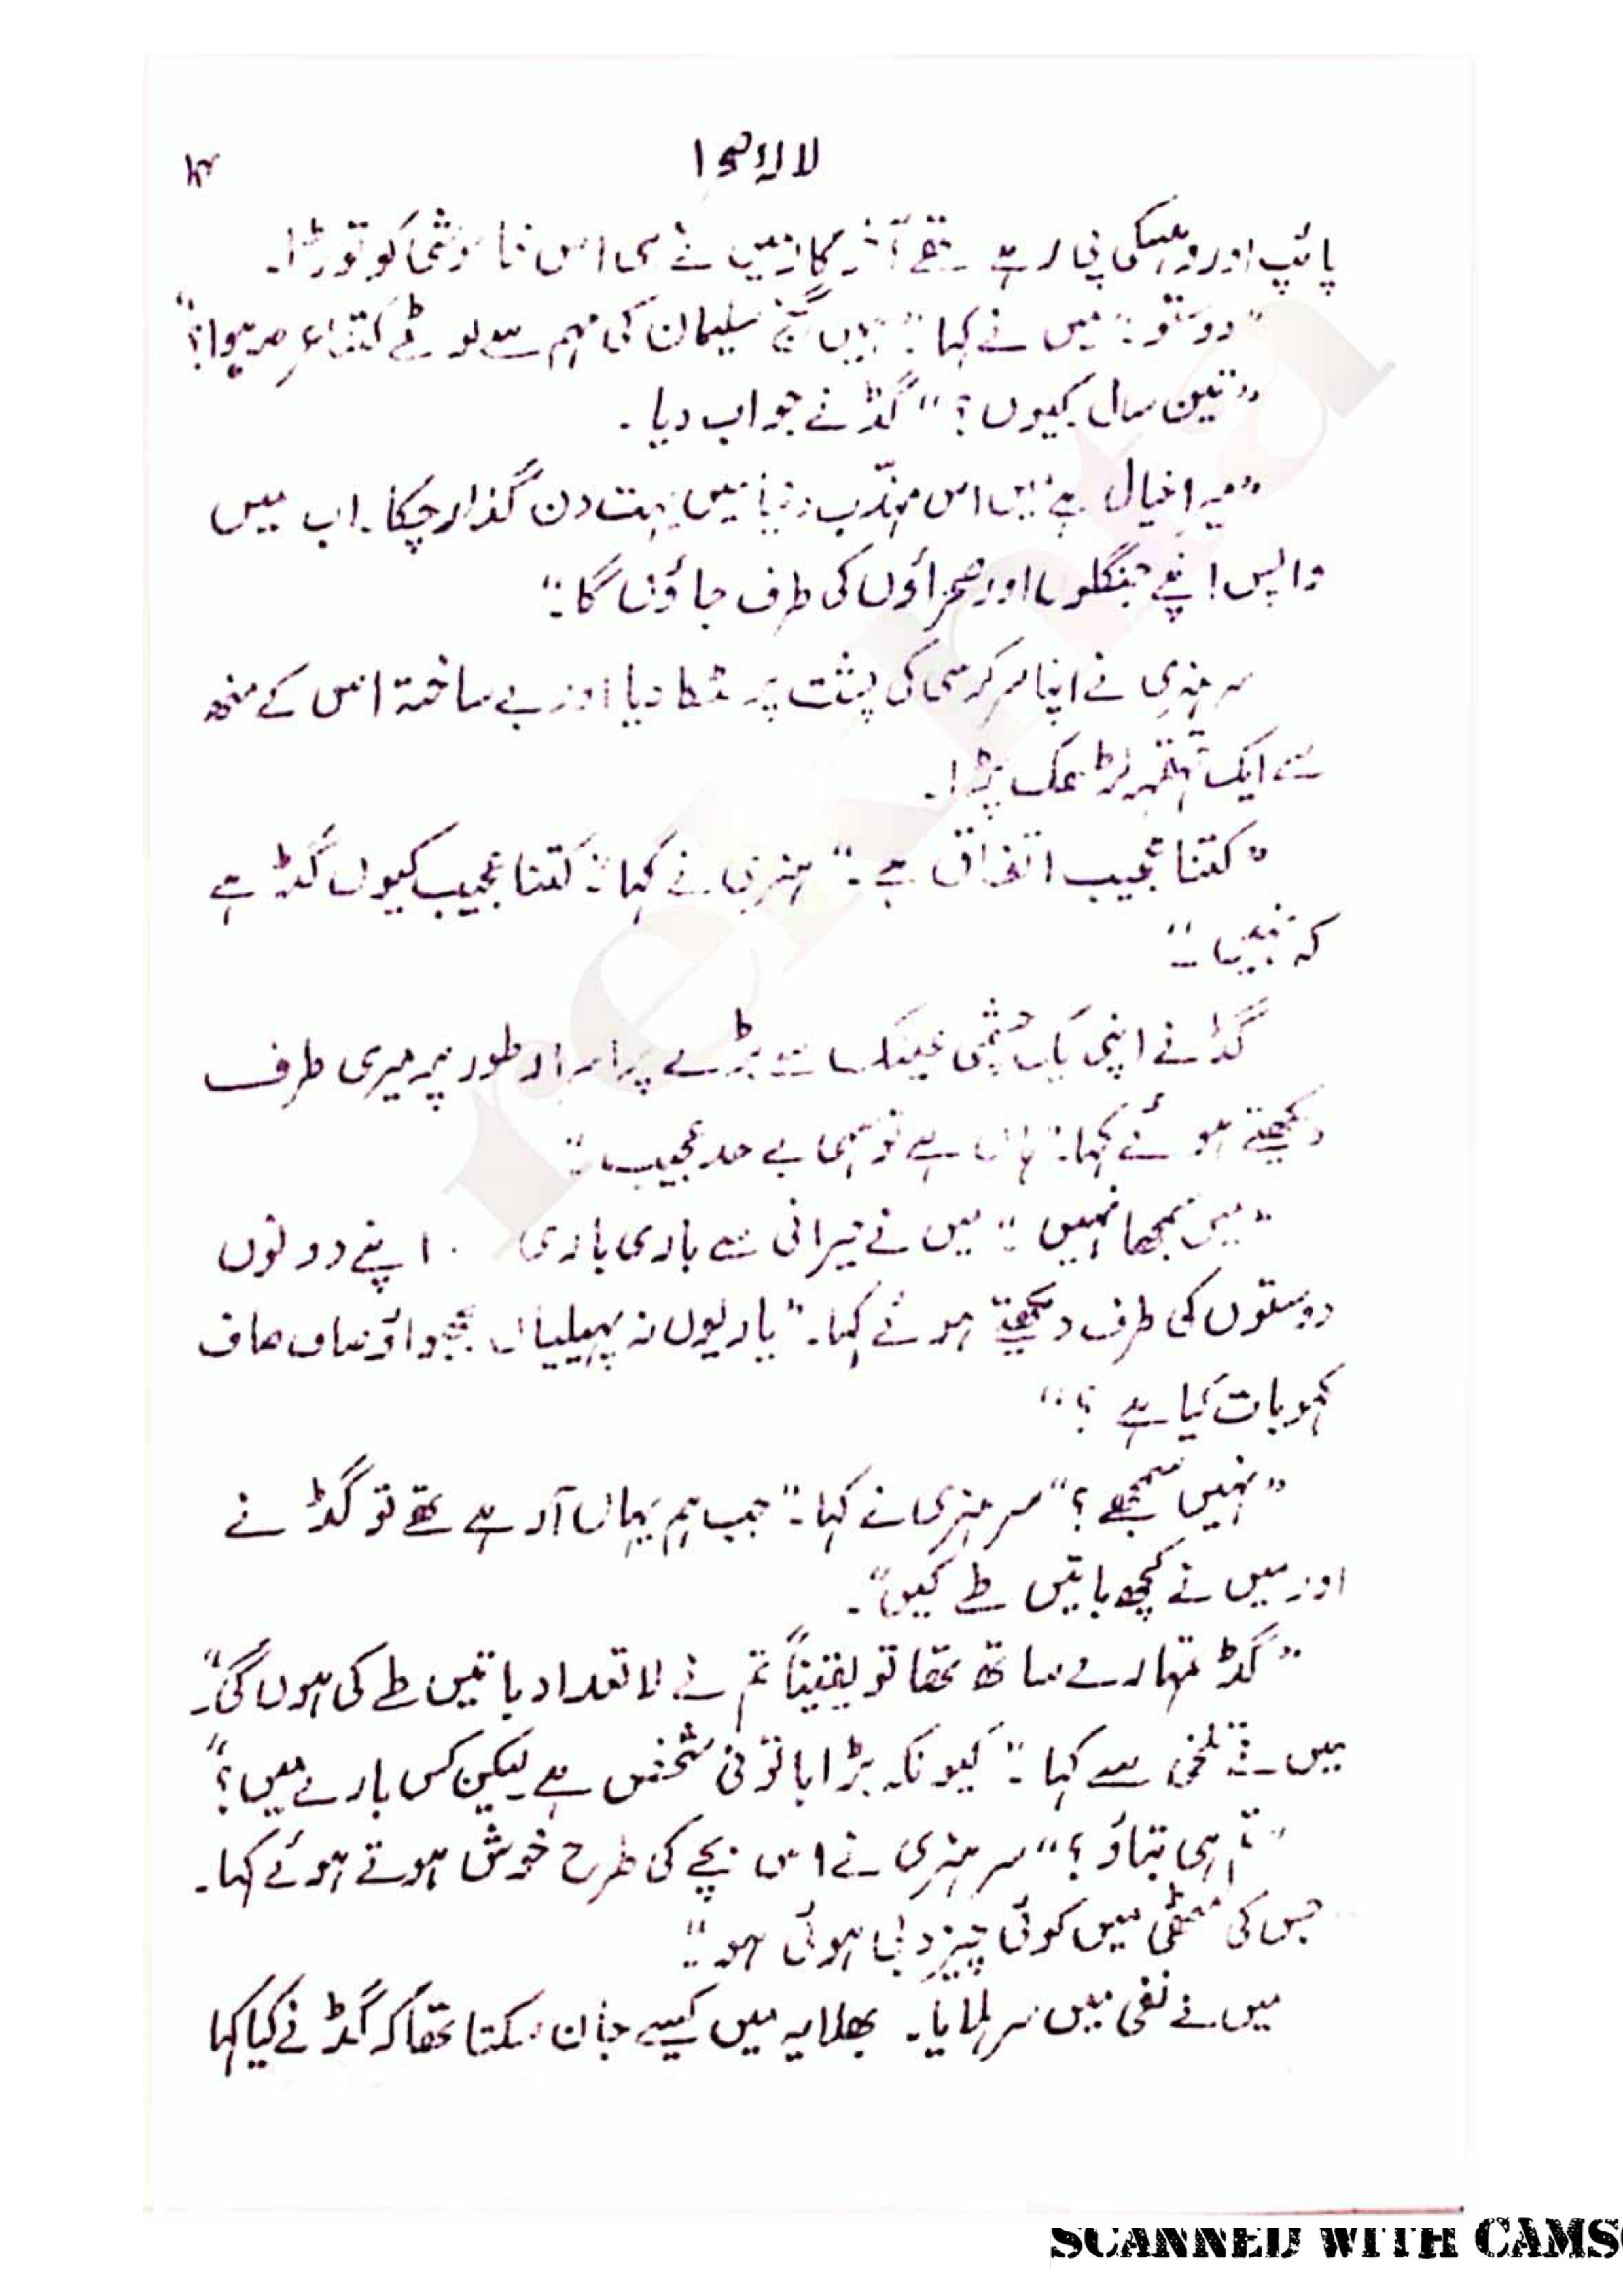 لالۂ صحرا
پائپ اور وہسکی پی رہے تھے آخر کار میں نے ہی اس خاموشی کو توڑا۔
"دوستو" میں نے کہا "ہمیں گنج سلیمان کی مہم سے لوٹے کتنا عرصہ ہوا؟"
"تین سال کیوں؟" گڈ نے جواب دیا۔
"میرا خیال ہے میں اس مہذب دنیا میں بہت دن گذار چکا۔ اب میں
واپس اپنے جنگلوں اور صحراؤں کی طرف جاؤں گا۔"
سر ہنری نے اپنا سر کرسی کی پشت پر ٹکا دیا اور بے ساختہ اس کے منھ
سے ایک قہقہہ لڑھک پڑا۔
"کتنا عجیب اتفاق ہے۔" ہنری نے کہا: کتنا عجیب کیوں گڈ ہے
کہ نہیں۔"
گڈ نے اپنی یک چشمی عینک سے بڑے پراسرار طور پر میری طرف
دیکھتے ہوئے کہا: ہاں ہے تو سہی بے حد عجیب۔"
"میں سمجھا نہیں" میں نے حیرانی سے باری باری اپنے دونوں
دوستوں کی طرف دیکھتے ہوئے کہا۔ "یار یوں نہ پہیلیاں بجھواؤ صاف صاف
کہو بات کیا ہے؟"
"نہیں سمجھے؟" سر ہنری نے کہا۔ "جب ہم یہاں آرہے تھے تو گڈ نے
اور میں نے کچھ باتیں طے کیں"۔
"گڈ تمہارے ساتھ تھا تو یقیناً تم نے لاتعداد باتیں طے کی ہوں گی۔"
میں نے تلخی سے کہا۔ "کیونکہ بڑا باتونی شخص ہے لیکن کس بارے میں؟"
"تم ہی بتاؤ؟" سر ہنری نے اس بچے کی طرح خوش ہوتے ہوئے کہا۔
جس کی مٹھی میں کوئی چیز دبی ہوئی ہو۔"
میں نے نفی میں سر ہلایا۔ بھلا یہ میں کیسے جان سکتا تھا کہ گڈ نے کیا کہا
SCANNED WITH CAMS